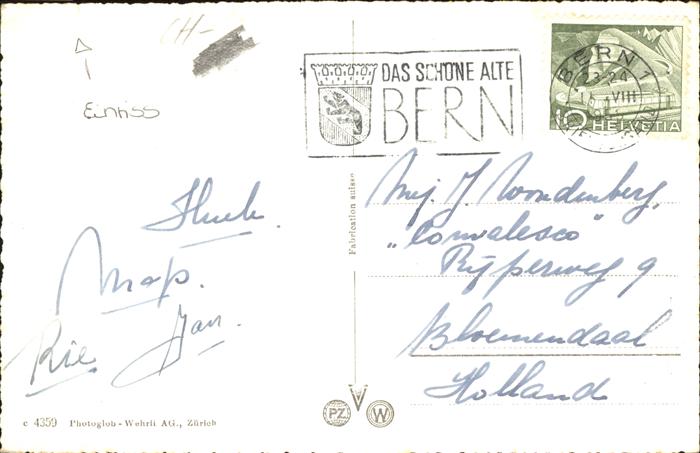 CH-
Einriss
DAS SCHÖNE ALTE
BERN
BERN 1
23-24
VIII
10 HELVETIA
Fabrication suisse
Mej. J. Woudenberg,
„Convalesco"
Rijperweg 9
Bloemendaal
Holland
Huub.
Map.
Rie. Jan.
c 4359 Photoglob-Wehrli AG., Zürich
PZ W